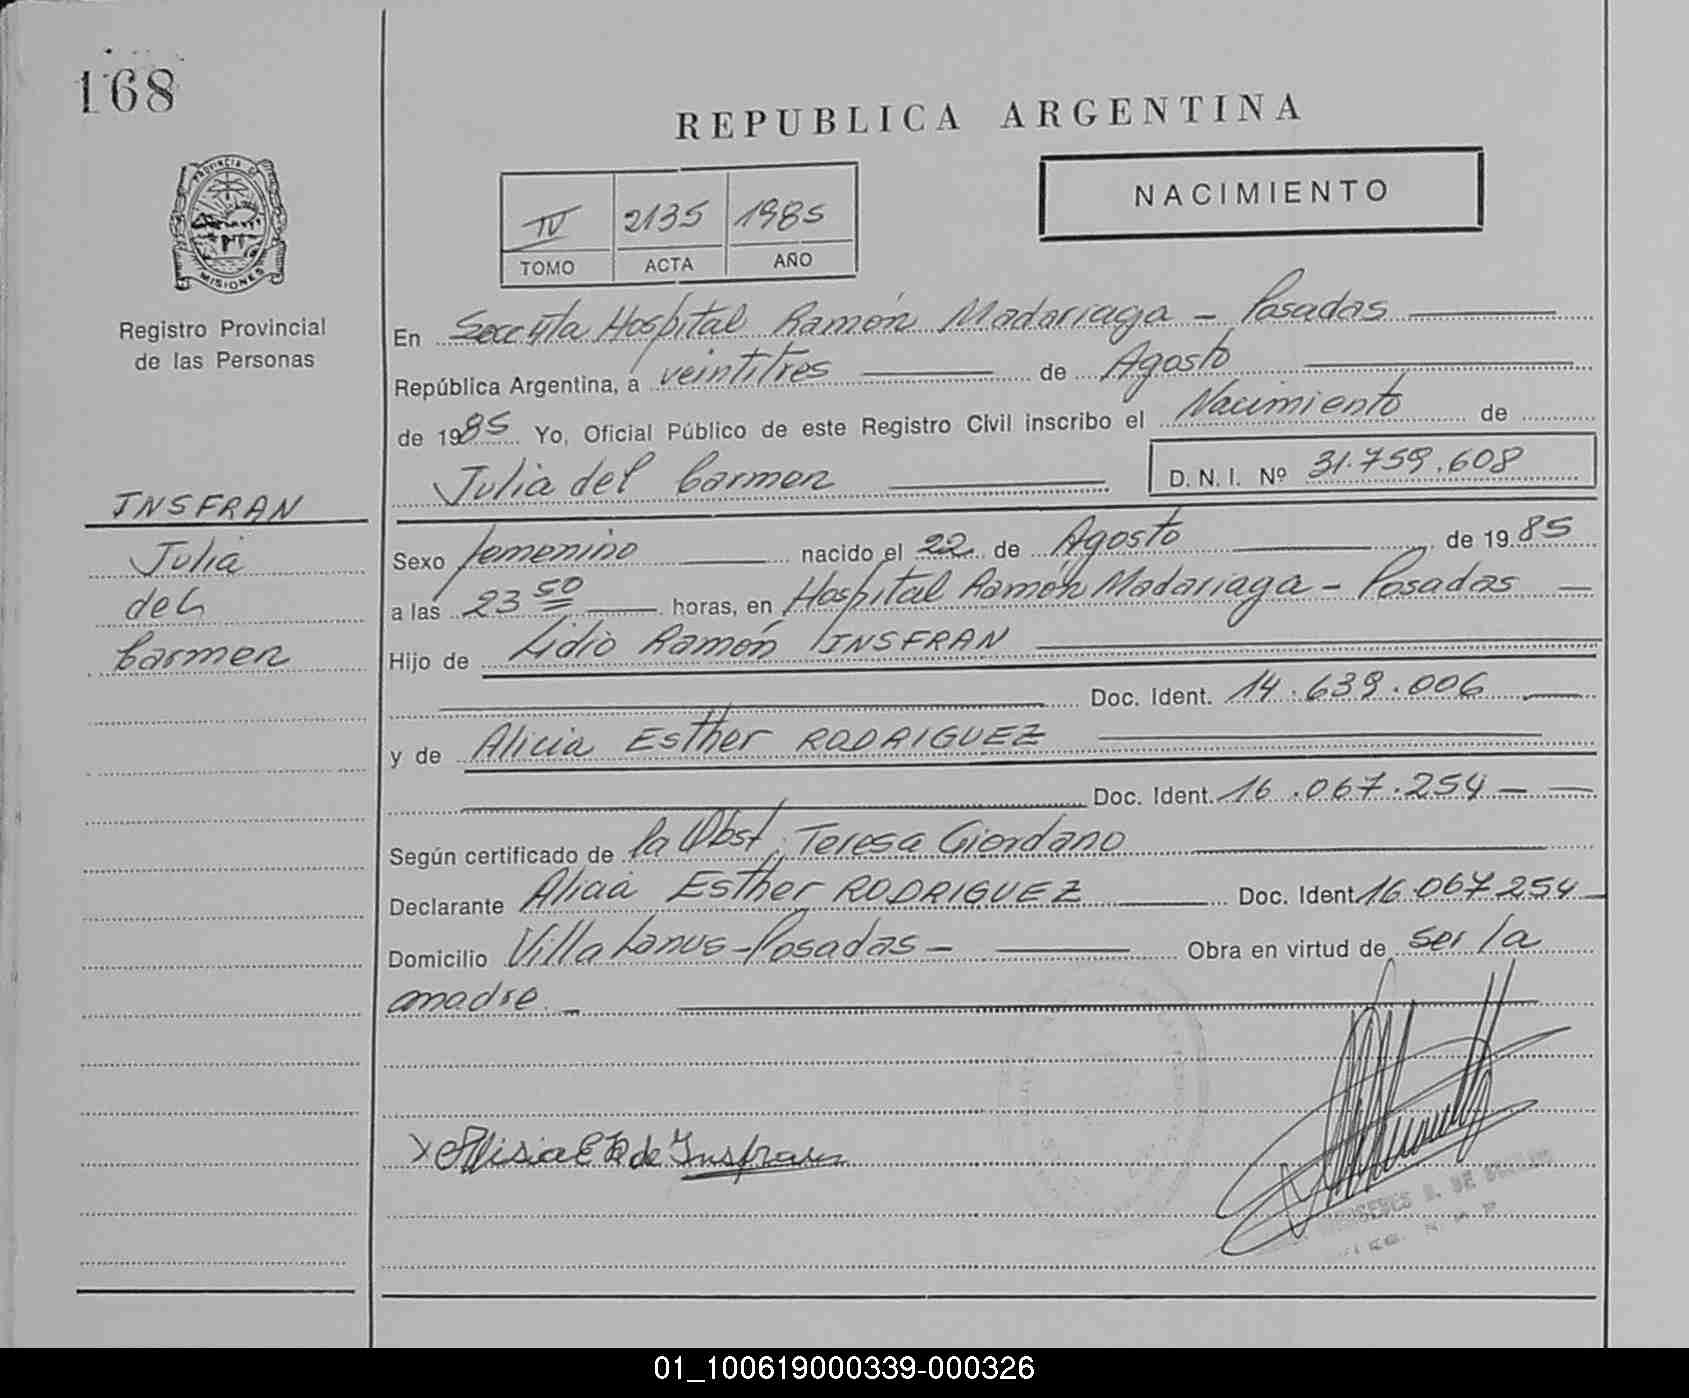 168
REPUBLICA ARGENTINA
PROVINCIA DE
MISIONES
Registro Provincial
de las Personas
NACIMIENTO
IV 2135 1985
TOMO ACTA AÑO
En Secc 4ta Hospital Ramón Madariaga - Posadas
República Argentina, a veintitres de Agosto
de 1985 Yo, Oficial Público de este Registro Civil inscribo el Nacimiento de
Julia del Carmen D. N. I. Nº 31.759.608
INSFRAN
Julia
del
Carmen
Sexo femenino nacido el 22 de Agosto de 1985
a las 23 50 horas, en Hospital Ramón Madariaga - Posadas -
Hijo de Lidio Ramón INSFRAN
Doc. Ident. 14.639.006
y de Alicia Esther RODRIGUEZ
Doc. Ident. 16.067.254 -
Según certificado de la Obst. Teresa Giordano
Declarante Alicia Esther RODRIGUEZ Doc. Ident. 16.067.254
Domicilio Villa Lanus - Posadas - Obra en virtud de ser la
madre. -
X Alisia E R de Insfran
01_100619000339-000326